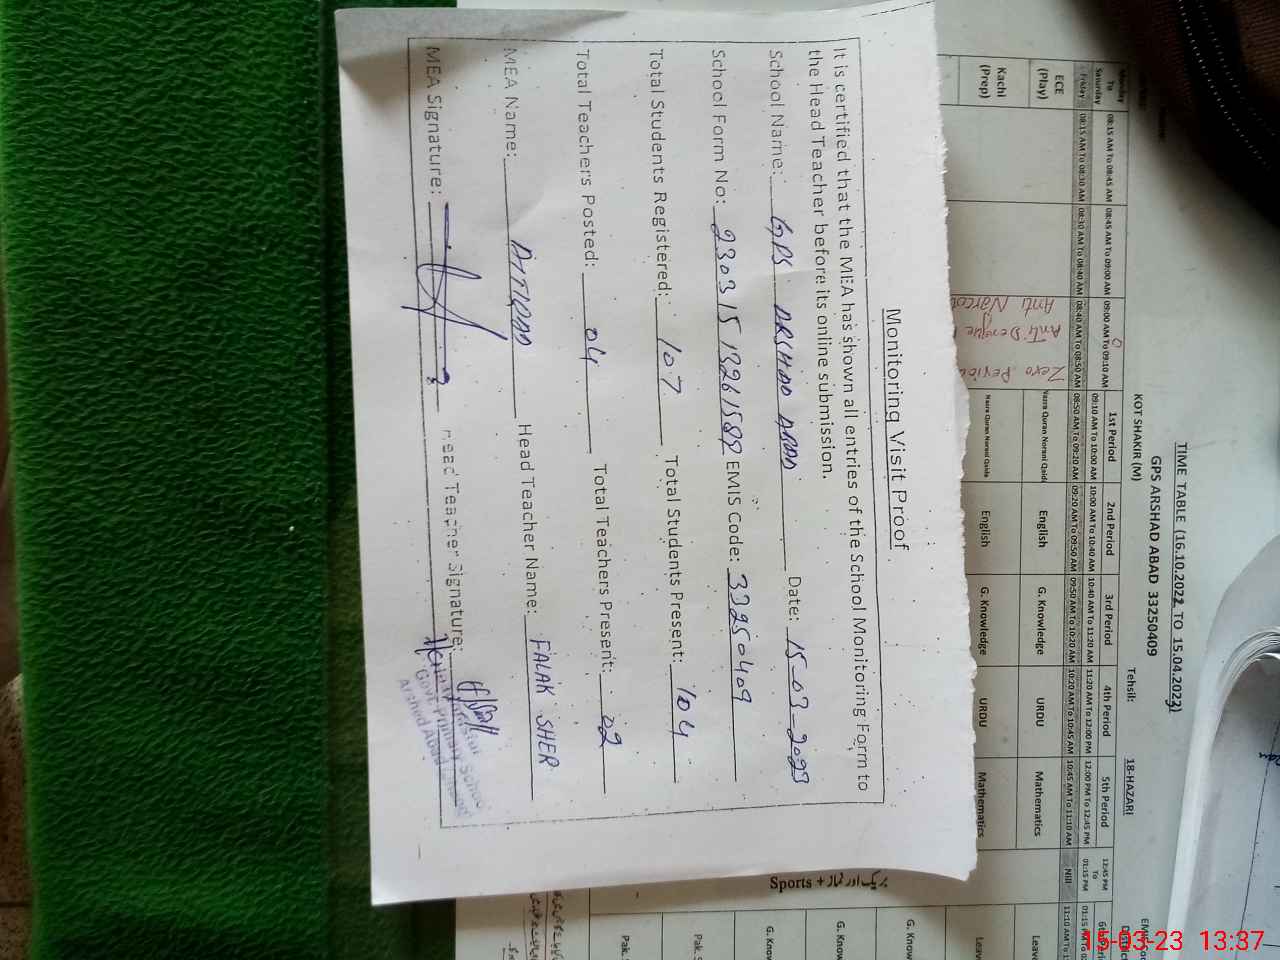 Monitoring Visit Proof
It is certified that the MEA has shown all entries of the School Monitoring Form to
the Head Teacher before its online submission.
School Name: GPS ARSHAD ABAD Date: 15-03-2023
School Form No: EMIS Code: 33250409
Total Students Registered: 107 Total Students Present: 104
Total Teachers Posted: 04 Total Teachers Present: 02
MEA Name: Head Teacher Name: FALAK SHER
MEA Signature: Head Teacher Signature:
Govt. Primary School
Arshad Abad
TIME TABLE (16.10.2022 TO 15.04.2023)
GPS ARSHAD ABAD 33250409
KOT SHAKIR (M) Tehsil: 18-HAZARI
Monday To Saturday 08:15 AM To 08:45 AM 08:45 AM To 09:00 AM 09:00 AM To 09:10 AM 1st Period 09:10 AM To 10:00 AM 2nd Period 10:00 AM To 10:40 AM 3rd Period 10:40 AM To 11:20 AM 4th Period 11:20 AM To 12:00 PM 5th Period 12:00 PM To 12:45 PM 12:45 PM To 01:15 PM
Friday 08:15 AM To 08:30 AM 08:30 AM To 08:40 AM 08:40 AM To 08:50 AM 08:50 AM To 09:20 AM 09:20 AM To 09:50 AM 09:50 AM To 10:20 AM 10:20 AM To 10:45 AM 10:45 AM To 11:10 AM Nill
ECE (Play) Nazra Quran Norani Qaida English G. Knowledge URDU Mathematics
Kachi (Prep) Nazra Quran Norani Qaida English G. Knowledge URDU Mathematics
Zero Period
Anti Dengue
Anti Narcot
Sports + بریک اور نماز
G. Know
G. Know
G. Kno
Pak.
Pak.
15-03-23 13:37